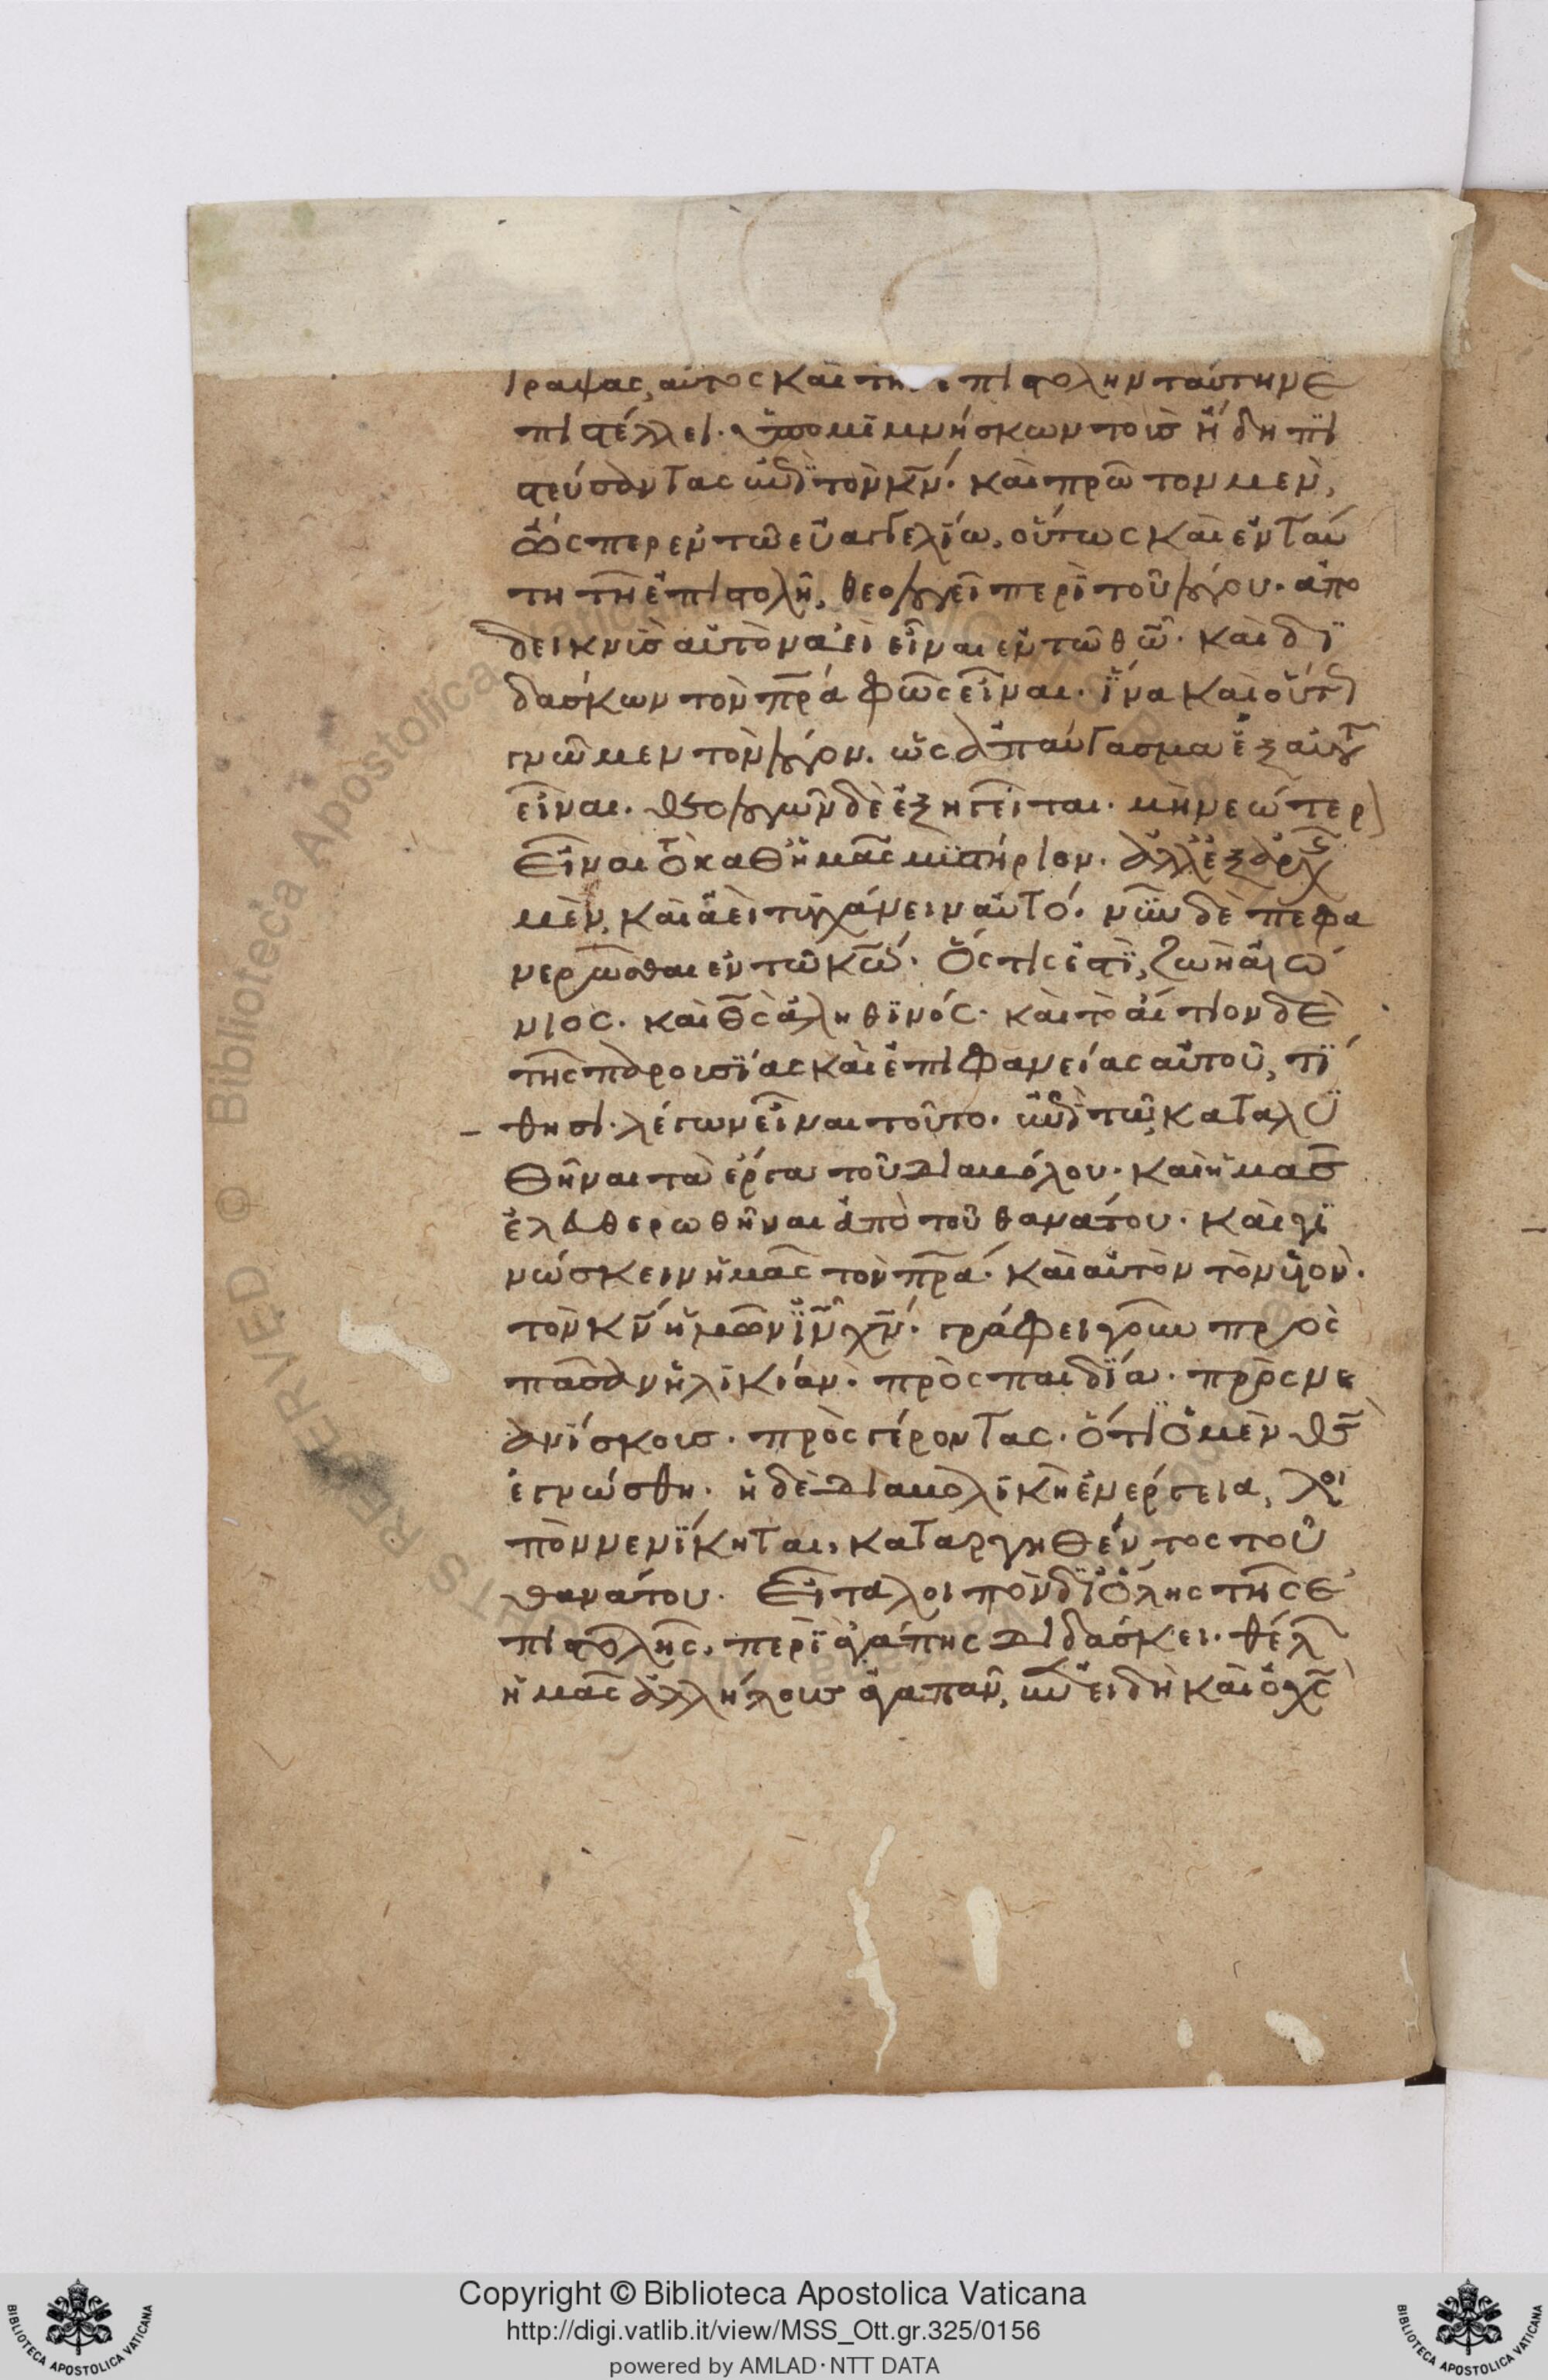 γραψας, αὐτος καὶ τὴν ἐπιστολὴν ταύτην ἐ
πιστέλλει. ὑπομιμνήσκων τοὺς ἤδη πι
στεύσαντας εἰς τὸν κν̅. καὶ πρῶτον μὲν,
ὥσπερ ἐν τῶ εὐαγγελίω, οὕτως καὶ ἐν ταύ
τη τῆ ἐπιστολῆ, θεολογεῖ περὶ τοῦ λόγου. ἀπο
δεικνὺς αὐτὸν ἀεὶ εἶναι ἐν τῶ θω̅. καὶ δι
δάσκων τὸν πρ̅α φῶς εἶναι. ἵνα καὶ οὕτω
γνῶμεν τὸν λόγον. ὡς ἀπαύγασμα ἐξ αὐτοῦ
εἶναι. θεολογῶν δὲ ἐξηγεῖται. μὴ νεώτερον
εἶναι τὸ καθ ἡμᾶς μυστήριον. ἀλλ ἐξ ἀρχῆς
μὲν, καὶ ἀεὶ τυγχάνειν αὐτό. νῦν δὲ πεφα
νερῶσθαι ἐν τῶ κω̅. ὅς τις ἐστὶ, ζωὴ αἰώ
νιος. καὶ θς̅ ἀληθινός. καὶ τὸ αἴτιον δὲ
τῆς παρουσίας καὶ ἐπιφανείας αὐτοῦ, τί
θησι. λέγων εἶναι τοῦτο. ἐπὶ τῶ καταλυ
θῆναι τὰ ἔργα τοῦ διαβόλου. καὶ ἡμᾶς
ἐλευθερωθῆναι ἀπὸ τοῦ θανάτου. καὶ γι
νώσκειν ἡμᾶς τὸν πρ̅α. καὶ αὐτὸν τὸν υἱὸν.
τὸν κν̅ ἡμῶν ιν̅ χν̅. γράφει γοῦν πρὸς
πᾶσαν ἡλικίαν. πρὸς παιδία. πρὸς νε
ανίσκους. πρὸς γέροντας. ὅτι ὁ μὲν θς̅
ἐγνώσθη. ἡ δὲ διαβολικὴ ἐνέργεια, λοι
πὸν νενίκηται, καταργηθέντος τοῦ
θανάτου. Εἶτα λοιπὸν δι ὅλης τῆς ἐ
πιστολῆς, περὶ ἀγάπης διδάσκει. θέλων
ἡμᾶς ἀλλήλους ἀγαπᾶν, ἐπειδὴ καὶ ὁ χς̅
Copyright © Biblioteca Apostolica Vaticana
http://digi.vatlib.it/view/MSS_Ott.gr.325/0156
powered by AMLAD·NTT DATA